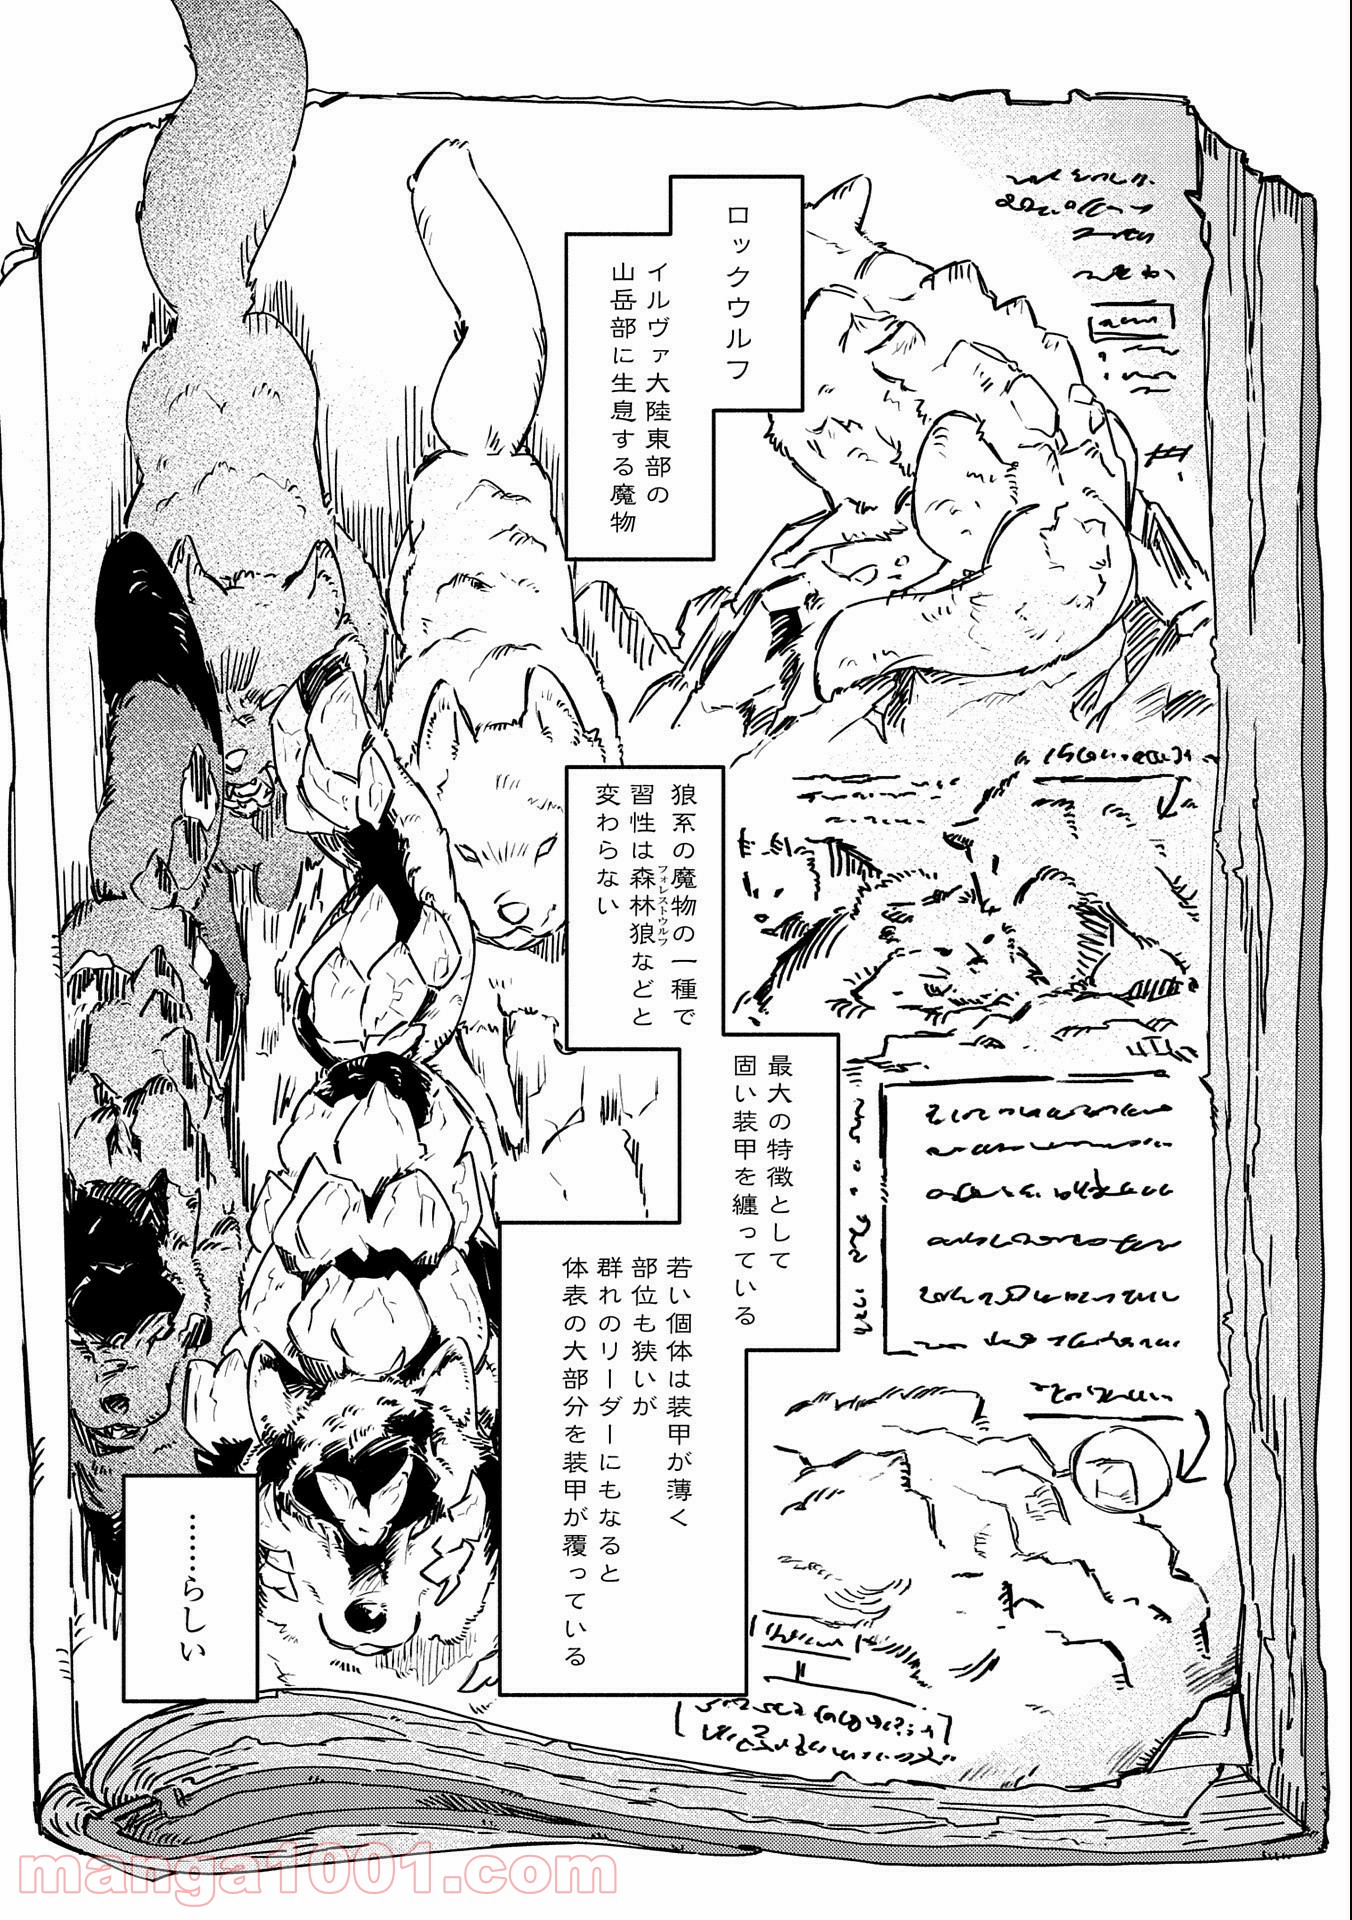 ロックウルフ
イルヴァ大陸東部の
山岳部に生息する魔物
狼系の魔物の一種で
習性は森林狼などと
フォレストウルフ
変わらない
最大の特徴として
固い装甲を纏っている
若い個体は装甲が薄く
部位も狭いが
群れのリーダーにもなると
体表の大部分を装甲が覆っている
……らしい
manga1001.com